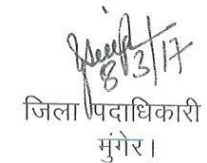 8/3/17
जिला पदाधिकारी
मुंगेर।